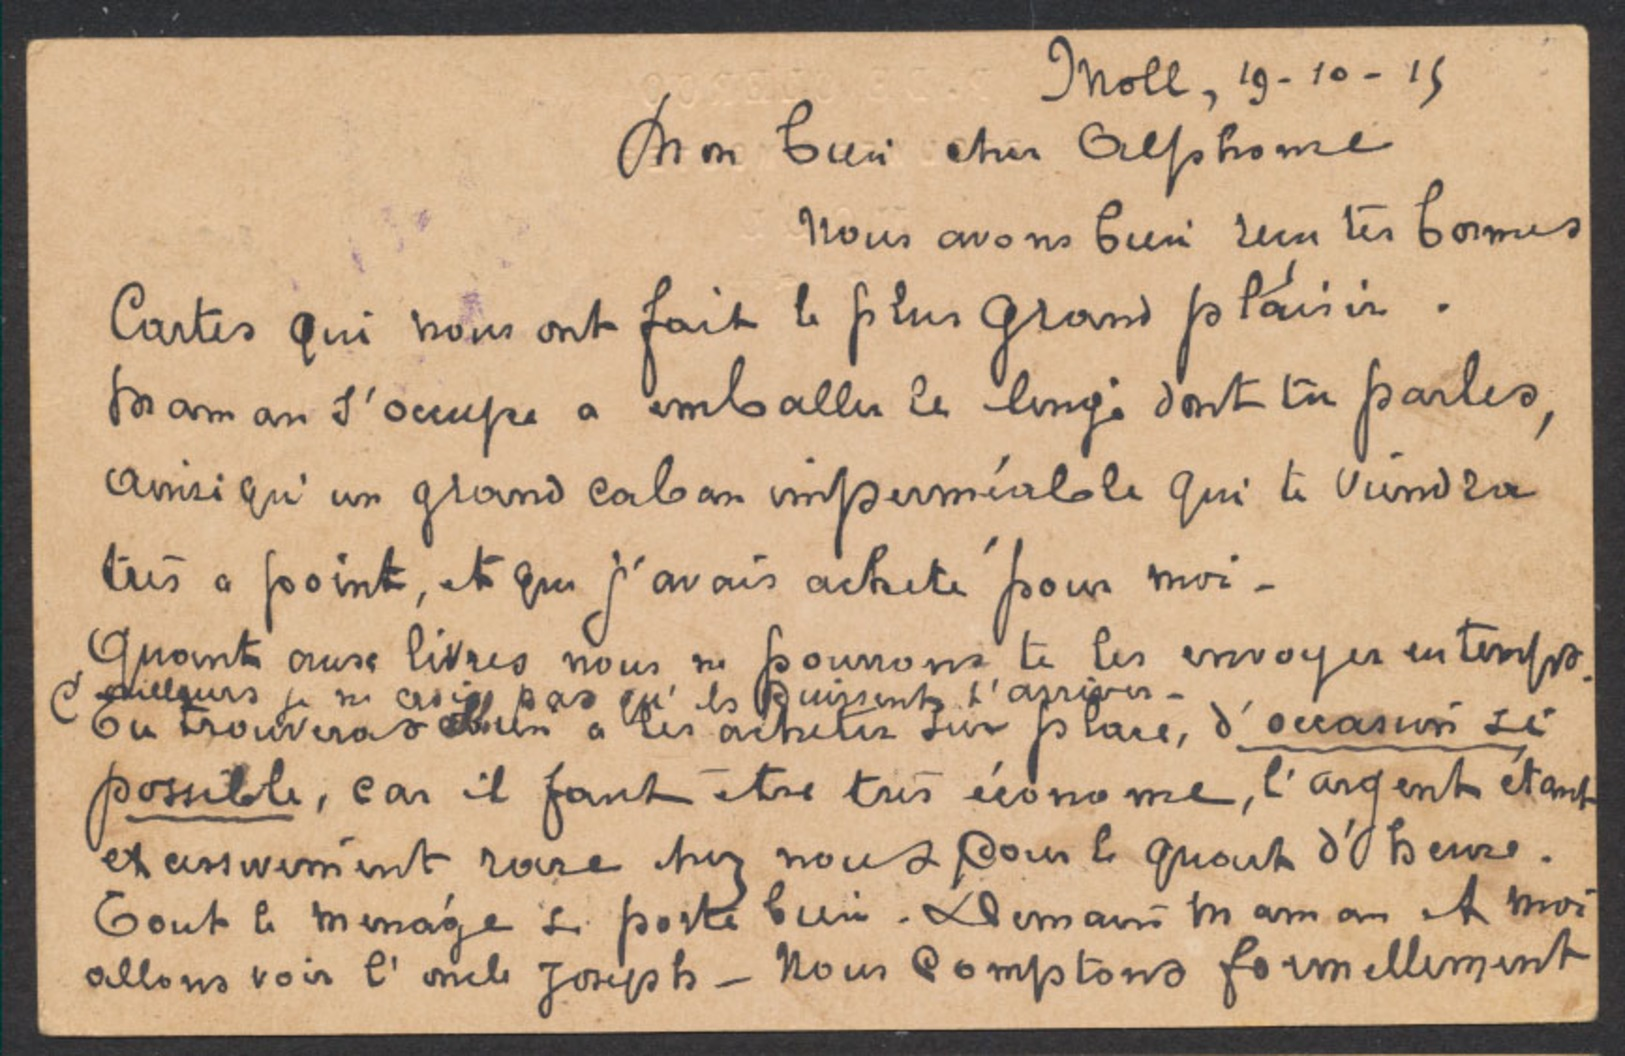 Moll, 19-10-15
Mon bien cher Alphonse
Nous avons bien reçu tes bonnes
Cartes qui nous ont fait le plus grand plaisir.
Maman s'occupe a emballer le linge dont tu parles,
ainsi qu'un grand caban imperméable qui te viendra
très a point, et que j'avais acheté pour moi -
Quant aux livres nous ne pourrons te les envoyer en temps.
d'ailleurs je ne crois pas qu'ils puissent t'arriver -
Tu trouveras bien a les acheter sur place, d'occasion si
possible, car il faut être très économe, l'argent étant
excessivement rare chez nous pour le quart d'heure.
Tout le menage se porte bien. Demain maman et moi
allons voir l'oncle Joseph - Nous comptons formellement